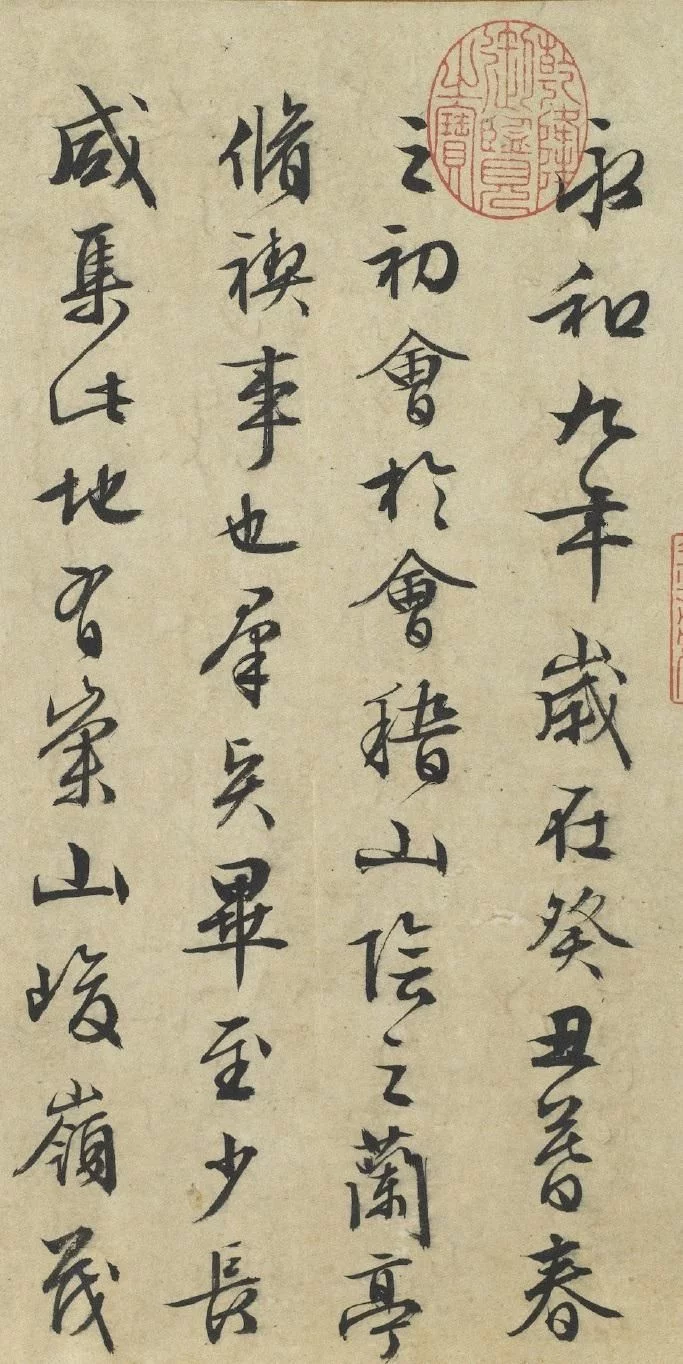 永和九年歲在癸丑暮春
之初會於會稽山陰之蘭亭
脩禊事也羣賢畢至少長
咸集此地有崇山峻嶺茂
乾隆
御覽
之寶